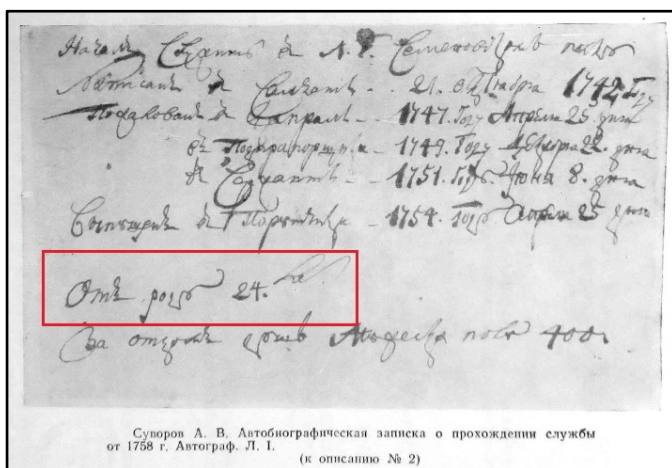 Служить в Л. Г. полку
в 21. октября 1742 Году
Пожалован в Капралы 1747. Году Апреля 25. дня
в Подпрапорщики - 1749. Году Декабря 22. дня
в Сержанты - - 1751. Году Июня 8. дня
в Порутчики - 1754. Году Апреля 25 дня
Отъ роду 24.
За отцом мужеска полу 400.
Суворов А. В. Автобиографическая записка о прохождении службы
от 1758 г. Автограф. Л. I.
(к описанию № 2)